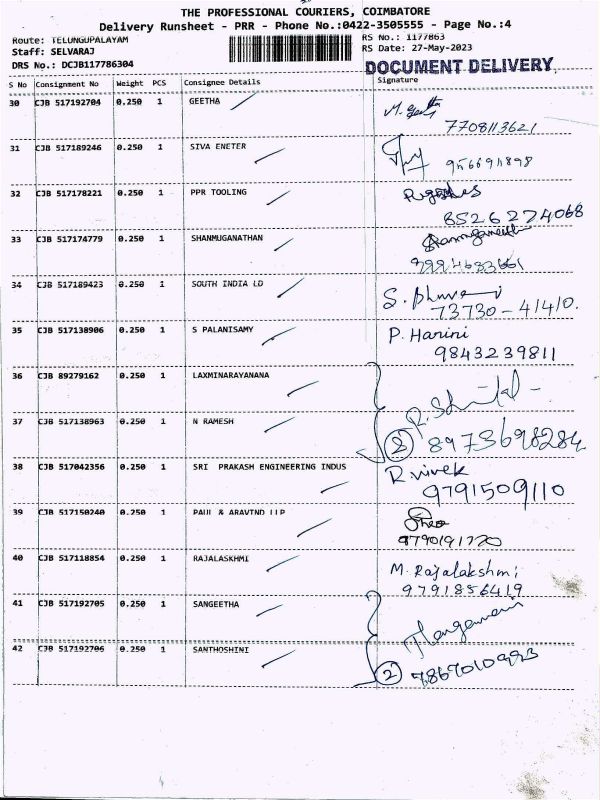 THE PROFESSIONAL COURIERS, COIMBATORE
Delivery Runsheet - PRR - Phone No.:0422-3505555 - Page No.:4
Route: TELUNGUPALAYAM
RS No.: 1177863
Staff: SELVARAJ
RS Date: 27-May-2023
DRS No.: DCJB117786304
DOCUMENT DELIVERY
S No Consignment No Weight PCS Consignee Details Signature
30 CJB 517192704 0.250 1 GEETHA
7708113621
31 CJB 517189246 0.250 1 SIVA ENETER
956691898
32 CJB 517178221 0.250 1 PPR TOOLING
8526274068
33 CJB 517174779 0.250 1 SHANMUGANATHAN
34 CJB 517189423 0.250 1 SOUTH INDIA LD
73730-41410.
35 CJB 517138906 0.250 1 S PALANISAMY P. Harini
9843239811
36 CJB 89279162 0.250 1 LAXMINARAYANANA
37 CJB 517138963 0.250 1 N RAMESH
2 8973698284
38 CJB 517042356 0.250 1 SRI PRAKASH ENGINEERING INDUS R vivek
9791509110
39 CJB 517150240 0.250 1 PAUL & ARAVIND LLP
9790191770
40 CJB 517118854 0.250 1 RAJALASKHMI M. Rajalakshmi
9791856419
41 CJB 517192705 0.250 1 SANGEETHA
42 CJB 517192706 0.250 1 SANTHOSHINI
2 7867010993